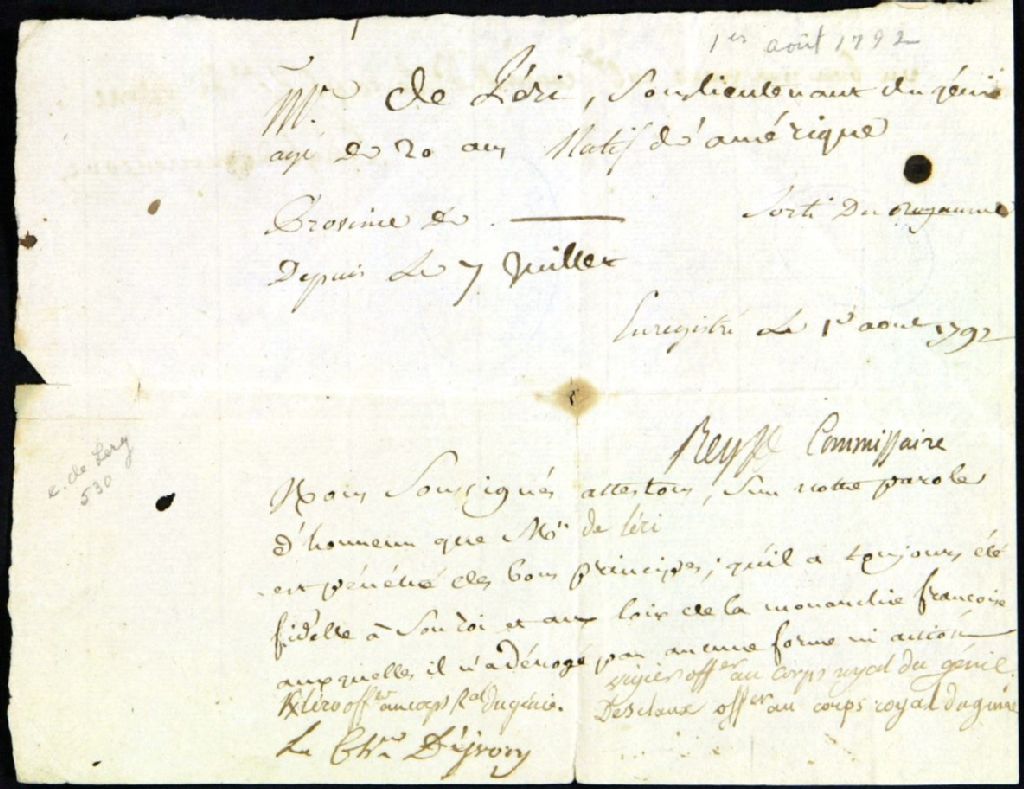 1er août 1792
Mr. de Léri, Souslieutenant du génie
agé de 20 ans Natif d'amérique
Province de . —— Sorti Du Royaume
Depuis Le 7 Juillet
Enregistré Le 1er aout 1792
Commissaire
c. de Lery
530
Nous Soussignés attestons, Sur notre parole
d'honneur que Mr. de Léri
est pénétré des bons principes; qu'il a toujours été
fidelle à Son roi et aux loix de la monarchie françoise
auxquelles il n'a dérogé par aucune forme ni action
offer au corps royal du génie
offer au corps Ral du génie. Desclaux offer au corps royal du génie
Le Cher